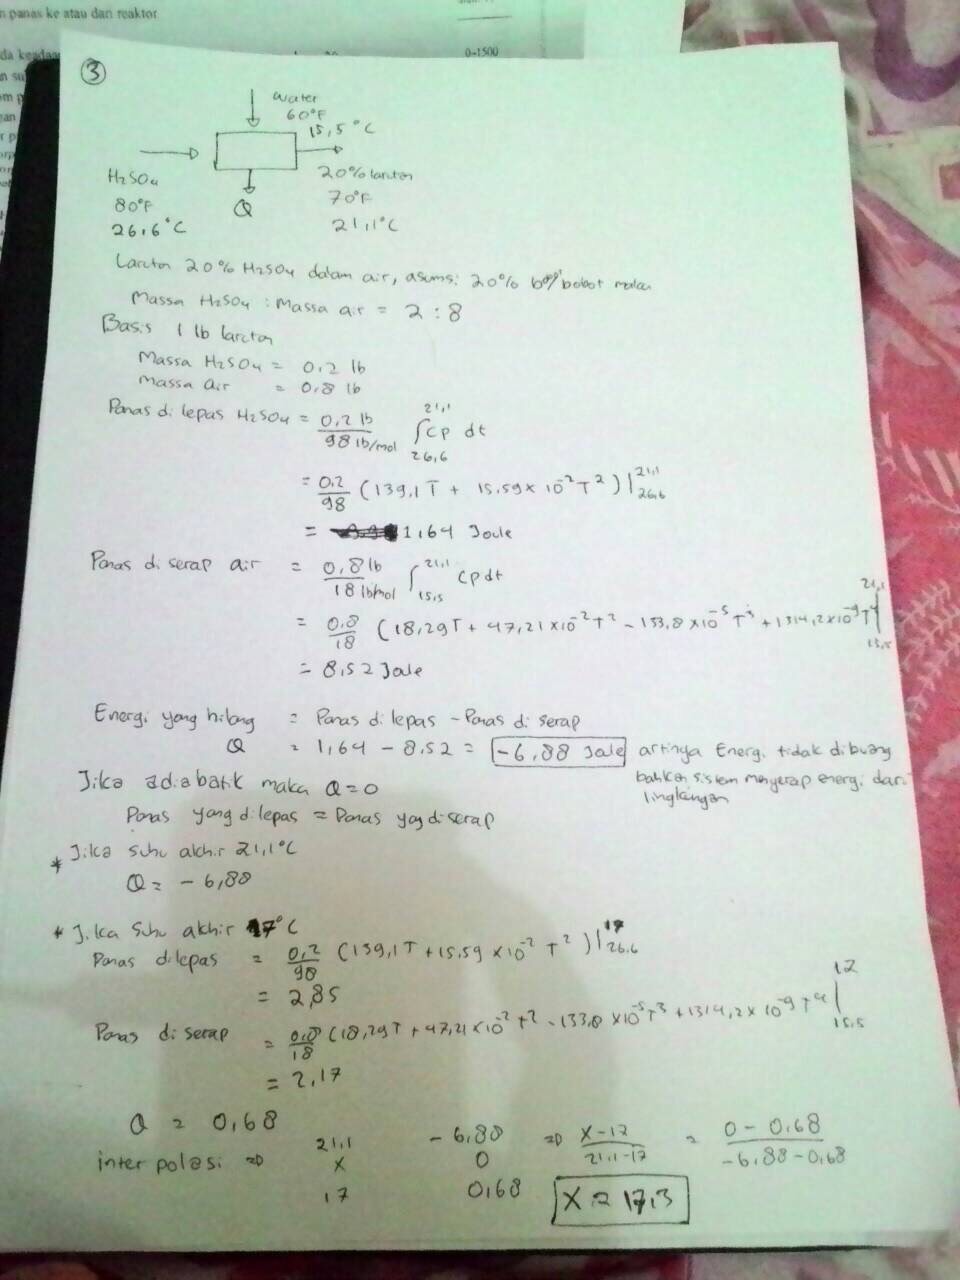 n panas ke atau dari reaktor
0-1500
③
water
60°F
15,5°C
H2SO4
80°F
26,6°C
Q
20% larutan
70°F
21,1°C
Larutan 20% H2SO4 dalam air, asumsi 20% bobot
Massa H2SO4 : Massa air = 2 : 8
Basis 1 lb larutan
Massa H2SO4 = 0,2 lb
Massa air = 0,8 lb
Panas di lepas H2SO4 = 0,2 lb / 98 lb/mol ∫ 26,6 21,1 Cp dt
= 0,2/98 (139,1T + 15,59 x 10^-2 T^2) | 26,6 21,1
= 1,64 Joule
Panas di serap air = 0,8 lb / 18 lbmol ∫ 15,5 21,1 Cp dt
= 0,8/18 (18,29T + 47,21 x 10^-2 T^2 - 133,8 x 10^-5 T^3 + 1314,2 x 10^-9 T^4 | 15,5 21,1
= 8,52 Joule
Energi yang hilang = Panas di lepas - Panas di serap
Q = 1,64 - 8,52 = -6,88 Joule artinya Energi tidak dibuang
bahkan sistem menyerap energi dari
lingkungan
Jika adiabatik maka Q = 0
Panas yang dilepas = Panas yg diserap
* Jika suhu akhir 21,1°C
Q = - 6,88
* Jika suhu akhir 17°C
Panas dilepas = 0,2/98 (139,1T + 15,59 x 10^-2 T^2) | 26,6 17
= 2,85
Panas di serap = 0,8/18 (18,29T + 47,21 x 10^-2 T^2 - 133,8 x 10^-5 T^3 + 1314,2 x 10^-9 T^4 | 15,5 17
= 2,17
Q = 0,68
interpolasi ⇒ 21,1 -6,88 ⇒ x-17 / 21,1-17 = 0 - 0,68 / -6,88 - 0,68
x 0
17 0,68
x = 17,3